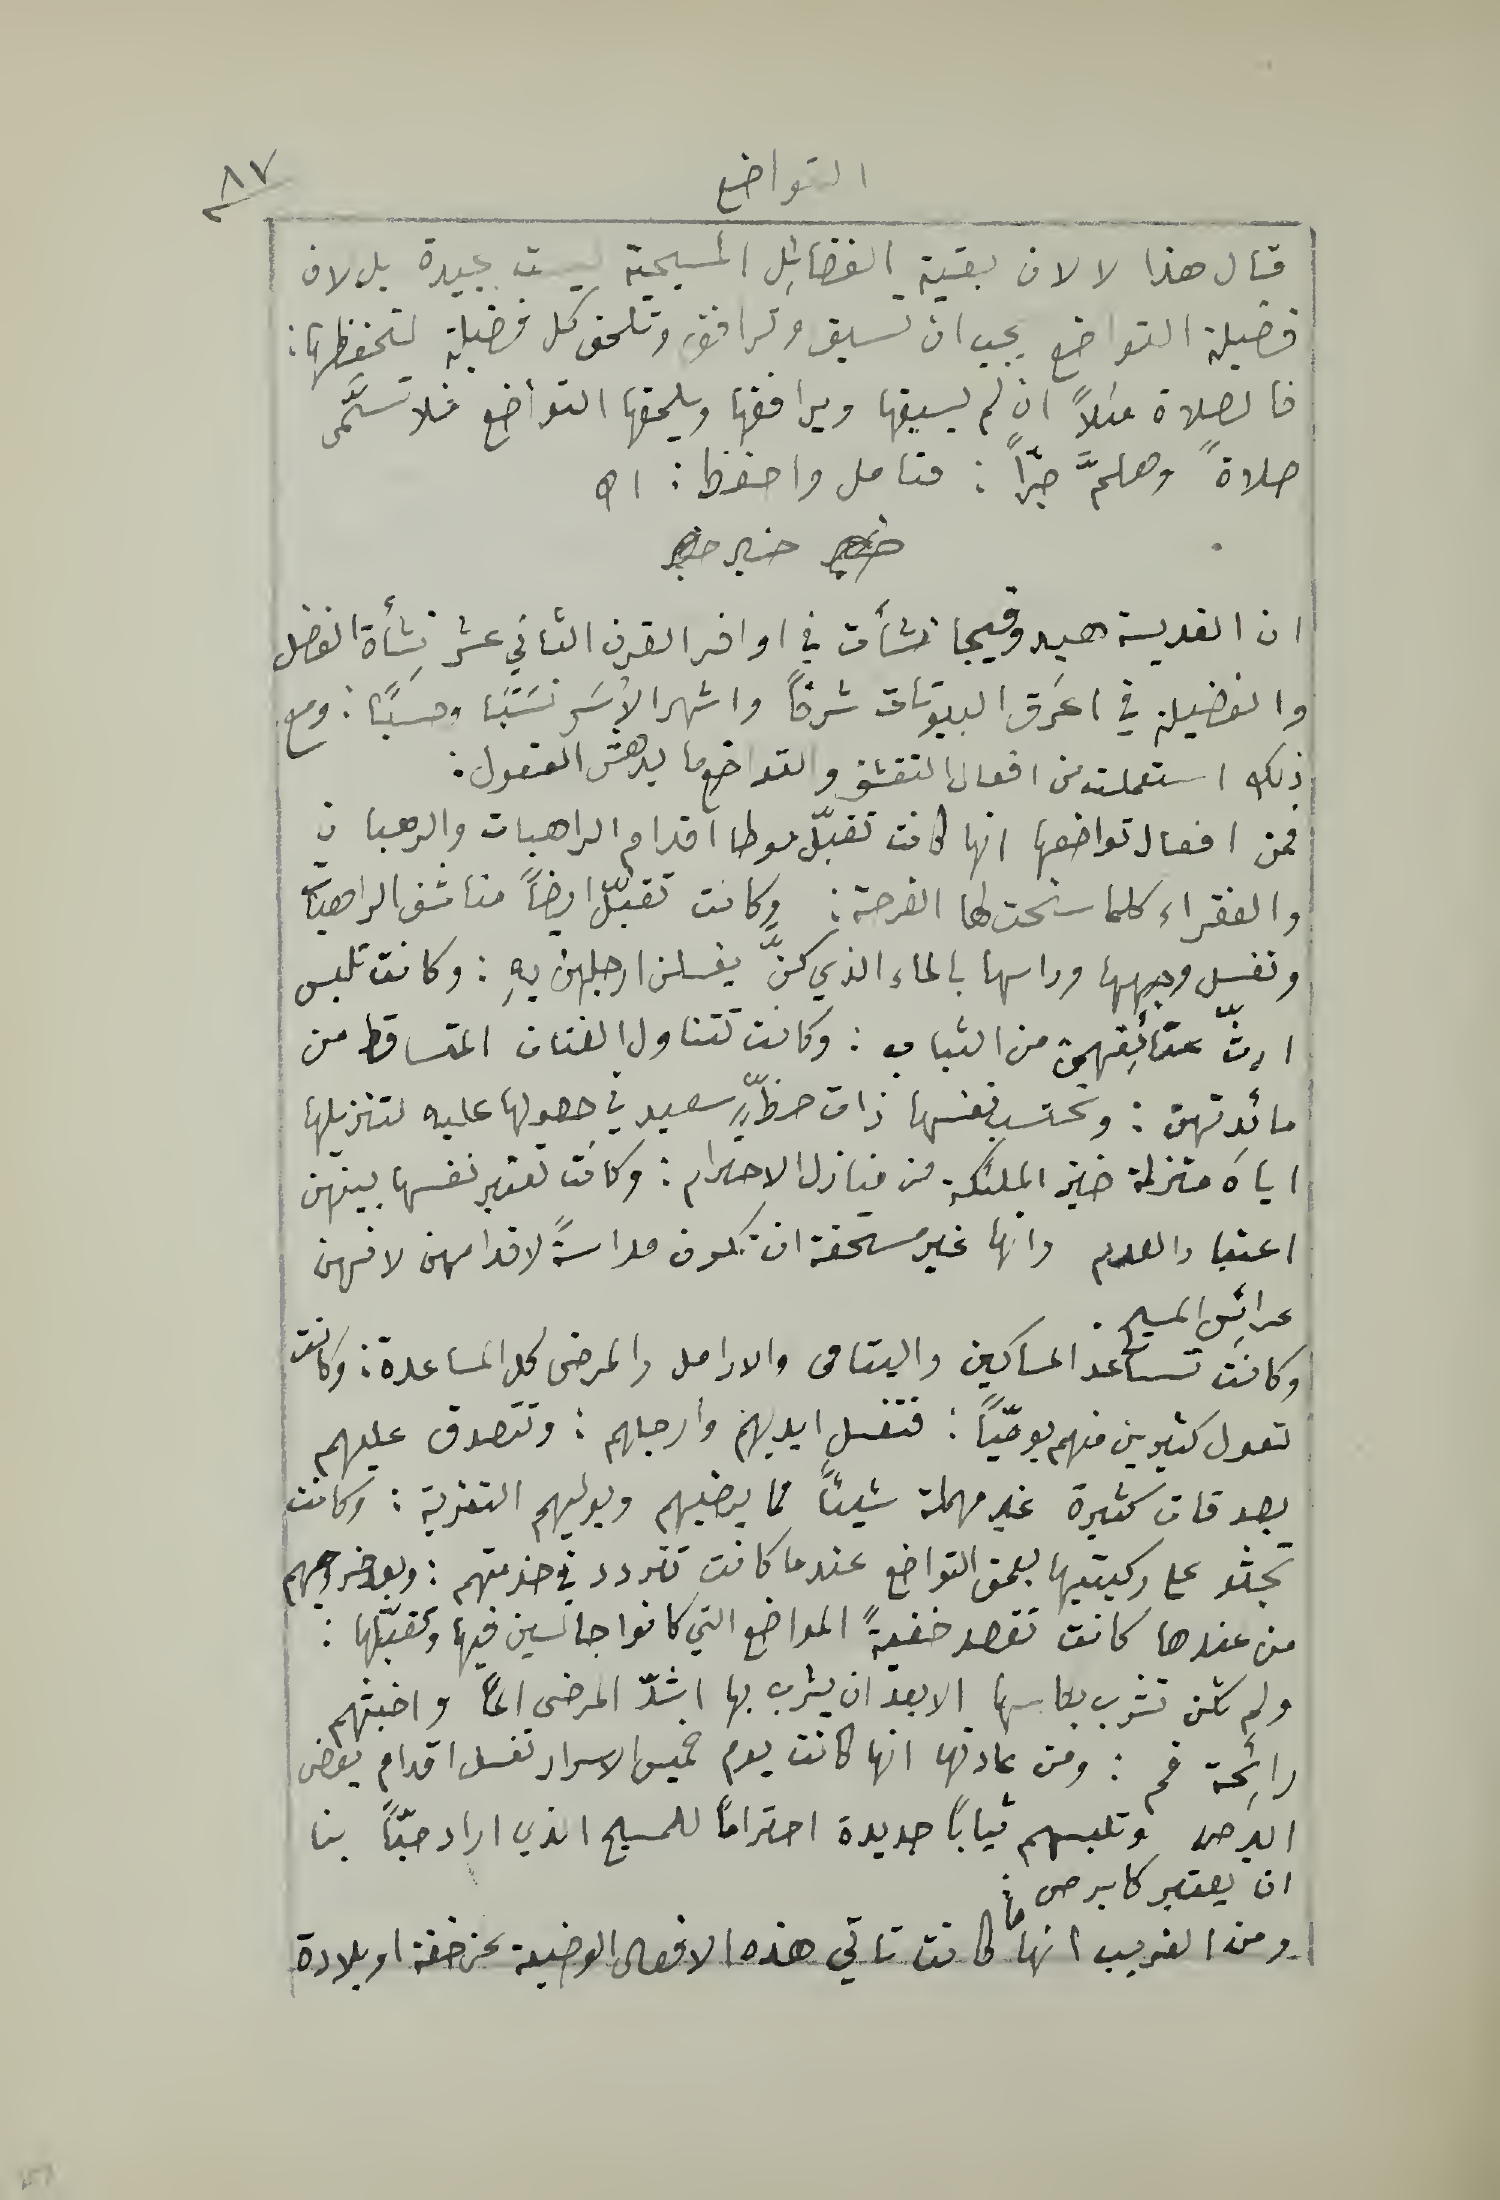 التواضع
٨٧
قال هذا لا لان بقية الفضائِل المسيحية ليست بجيدة بل لان
فضيلة التواضع يجب ان تسبق وترافق وتلحق كل فضيلة لتحفظها :
فالصلاة مثلاً ان لم يسبقها ويرافقها ويلحقها التواضع فلا تسمَّى
صلاةً وهلمَّ جرّاً : فتامل واحفظ : اه
خبر
ان القديسة هيدوقيجا نشأت في اواخر القرن الثاني عشر نِشأة الفضل
والفضيلة في اعرَق البيوتات شرفاً واشهر الأُسَر نَسَبًا وحسَبًا : ومع
ذلك استعملت من افعال التقشف والتواضع ما يدهش العقول :
فمن افعال تواضعها انها كانت تقبّل موطا اقدام الراهبات والرهبان
والفقراء كلما سنحت لها الفرصة : وكانت تقبّل ايضاً مناشف الراهبات
وتغسل وجهها وراسها بالماء الذي كنَّ يغسلن ارجلهن بهِ : وكانت تلبس
ارثّ عتائِقهن من الثياب : وكانت تتناول الفتات المتساقط من
مائدتهن : وتحتسب نفسها ذات حظٍّ سعيد في حصولها عليه لتنزيلها
اياهَ منزلة خبز الملئكة من منازل الاحترام : وكانت تعتبر نفسها بينهن
اعتبار العدم وانها غير مستحقة ان تكون مداسةً لاقدامهن لانهن
عرائِس المسيح .
وكانت تساعد المساكين واليتامى والارامل والمرضى كل المساعدة : وكانت
تعول كثيرين منهم يوميّاً : فتغسل ايديهم وأرجلهم : وتتصدق عليهم
بصدقات كثيرة غير مهملة شيئاً مما يرضيهم ويوليهم التعزية : وكانت
تجثو على ركبتيها بعمق التواضع عندما كانت تتردد في خدمتهم : وبعد خروجهم
من عندها كانت تقصد خفيةً المواضع التي كانوا جالسين فيها وتقبّلها :
ولم تكن تشرب بكاسها الا بعد ان يشرب بها اشدّ المرضى المًا واخبثهم
رائِحة فم : ومن عادتها انها كانت يوم خميس الاسرار تغسل اقدام بعض
البرص وتلبسهم ثياباً جديدة احتراماً للمسيح الذي اراد حبّاً بنا
ان يعتبر كابرص :
ومن الغريب انها ما كانت تاتي هذه الافعال الوضيعة عن خفة او بلادة